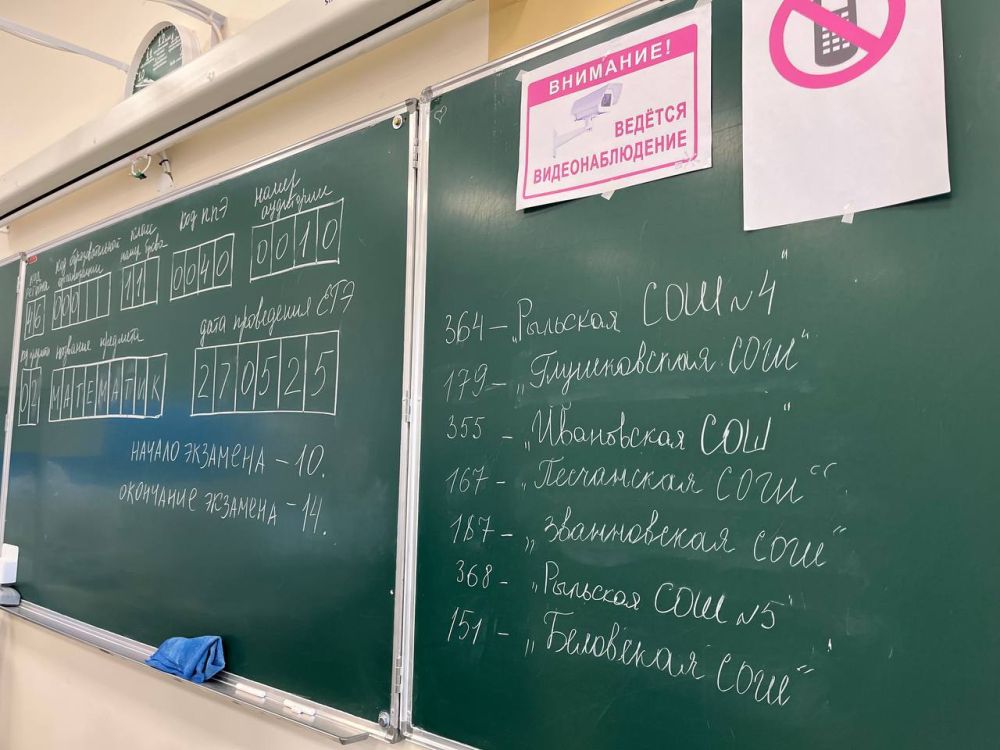 код региона
код образовательной организации
класс номер буква
код ППЭ
номер аудитории
46
000
11
0040
0010
код предмета
название предмета
дата проведения ЕГЭ
02
МАТЕМАТИК
270525
НАЧАЛО ЭКЗАМЕНА – 10.
ОКОНЧАНИЕ ЭКЗАМЕНА – 14.
ВНИМАНИЕ!
ВЕДЁТСЯ
ВИДЕОНАБЛЮДЕНИЕ
364 – „Рыльская СОШ №4"
179 – „Глушковская СОШ"
355 – „Ивановская СОШ"
167 – „Песчанская СОШ"
187 – „Званновская СОШ"
368 – „Рыльская СОШ №5"
151 – „Беловская СОШ"